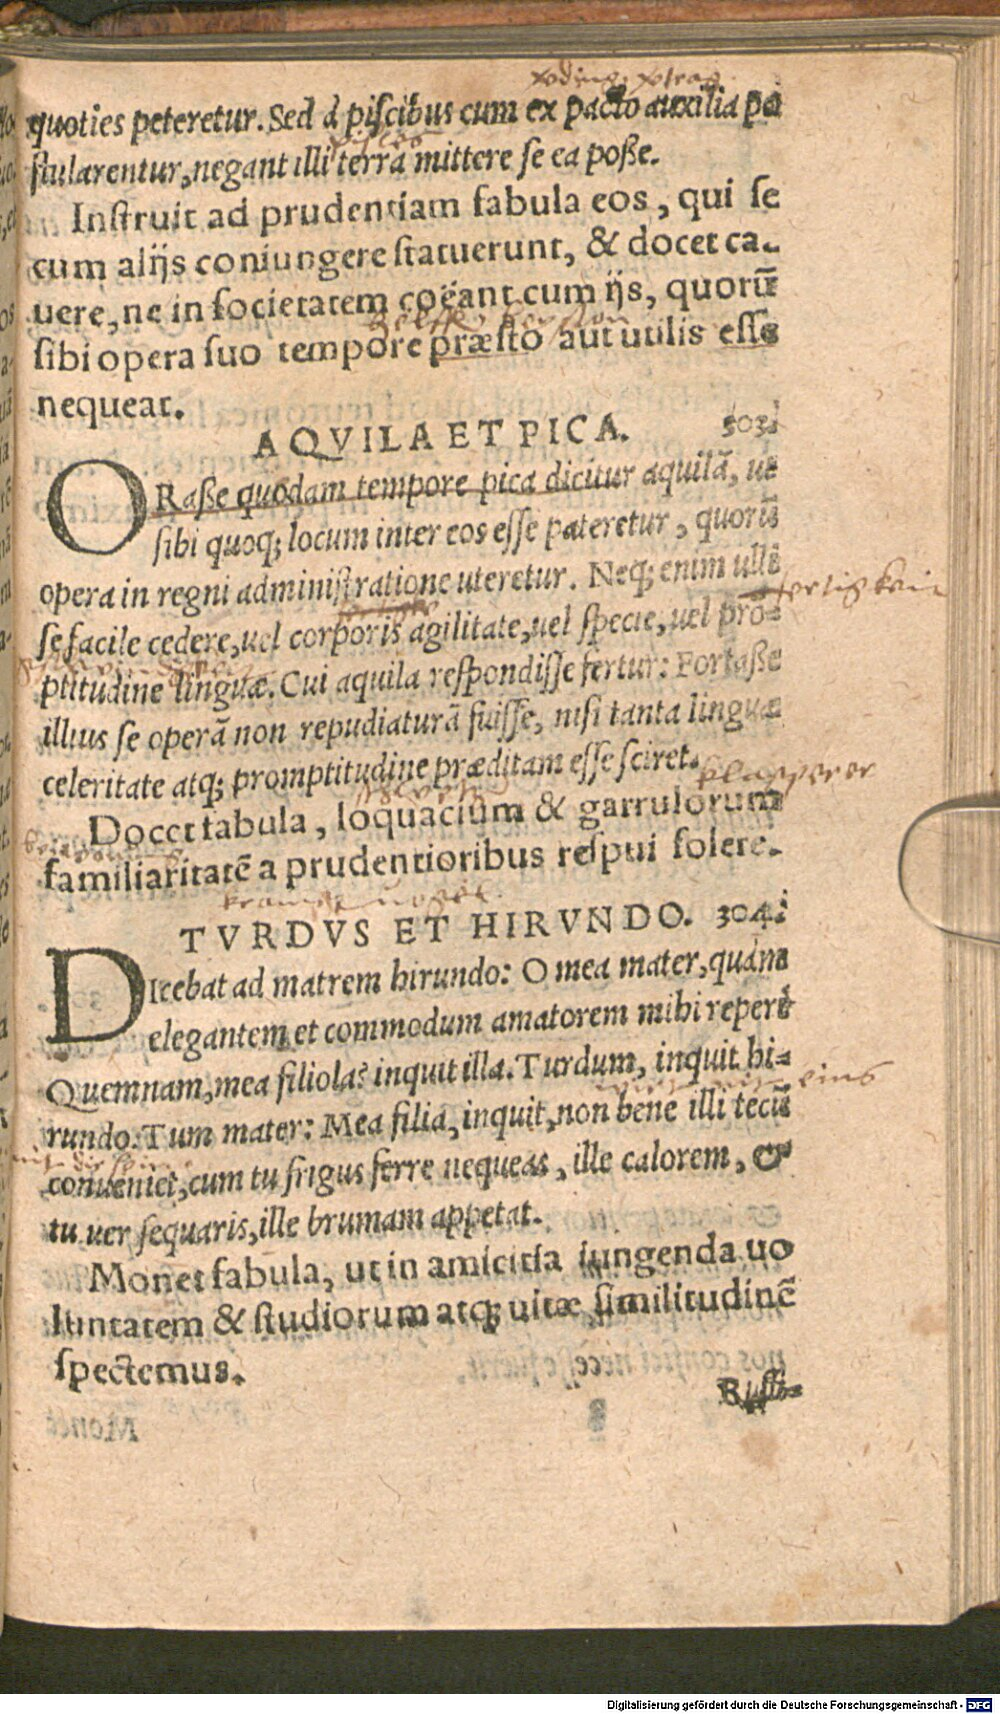 quoties peteretur. Sed à piscibus cum ex pacto auxilia po
stularentur, negant illi terra mittere se ea poße.
Instruit ad prudentiam fabula eos, qui se
cum alijs coniungere statuerunt, & docet ca-
uere, ne in societatem coëant cum ijs, quorū
sibi opera suo tempore præsto aut utilis esse
nequeat.
AQVILA ET PICA. 303.
ORaße quodam tempore pica dicitur aquilā, ut
sibi quoq; locum inter eos esse pateretur, quorū
opera in regni administratione uteretur. Neq; enim ulli
fertig kein
se facile cedere, uel corporis agilitate, uel specie, uel pro-
ptitudine linguæ. Cui aquila respondisse fertur: Fortaße
illius se operā non repudiaturā fuisse, nisi tanta linguæ
celeritate atq; promptitudine præditam esse sciret.
klapperer
Docet fabula, loquacium & garrulorum
familiaritatē a prudentioribus respui solere.
TVRDVS ET HIRVNDO. 304.
DIcebat ad matrem hirundo: O mea mater, quàm
elegantem et commodum amatorem mihi reperi
Quemnam, mea filiola? inquit illa. Turdum, inquit hi-
eins
rundo. Tum mater: Mea filia, inquit, non bene illi tecū
conueniet, cum tu frigus ferre nequeas, ille calorem, &
tu uer sequaris, ille brumam appetat.
Monet fabula, ut in amicitia iungenda uo
luntatem & studiorum atq; uitæ similitudinē
spectemus.
Digitalisierung gefördert durch die Deutsche Forschungsgemeinschaft - DFG